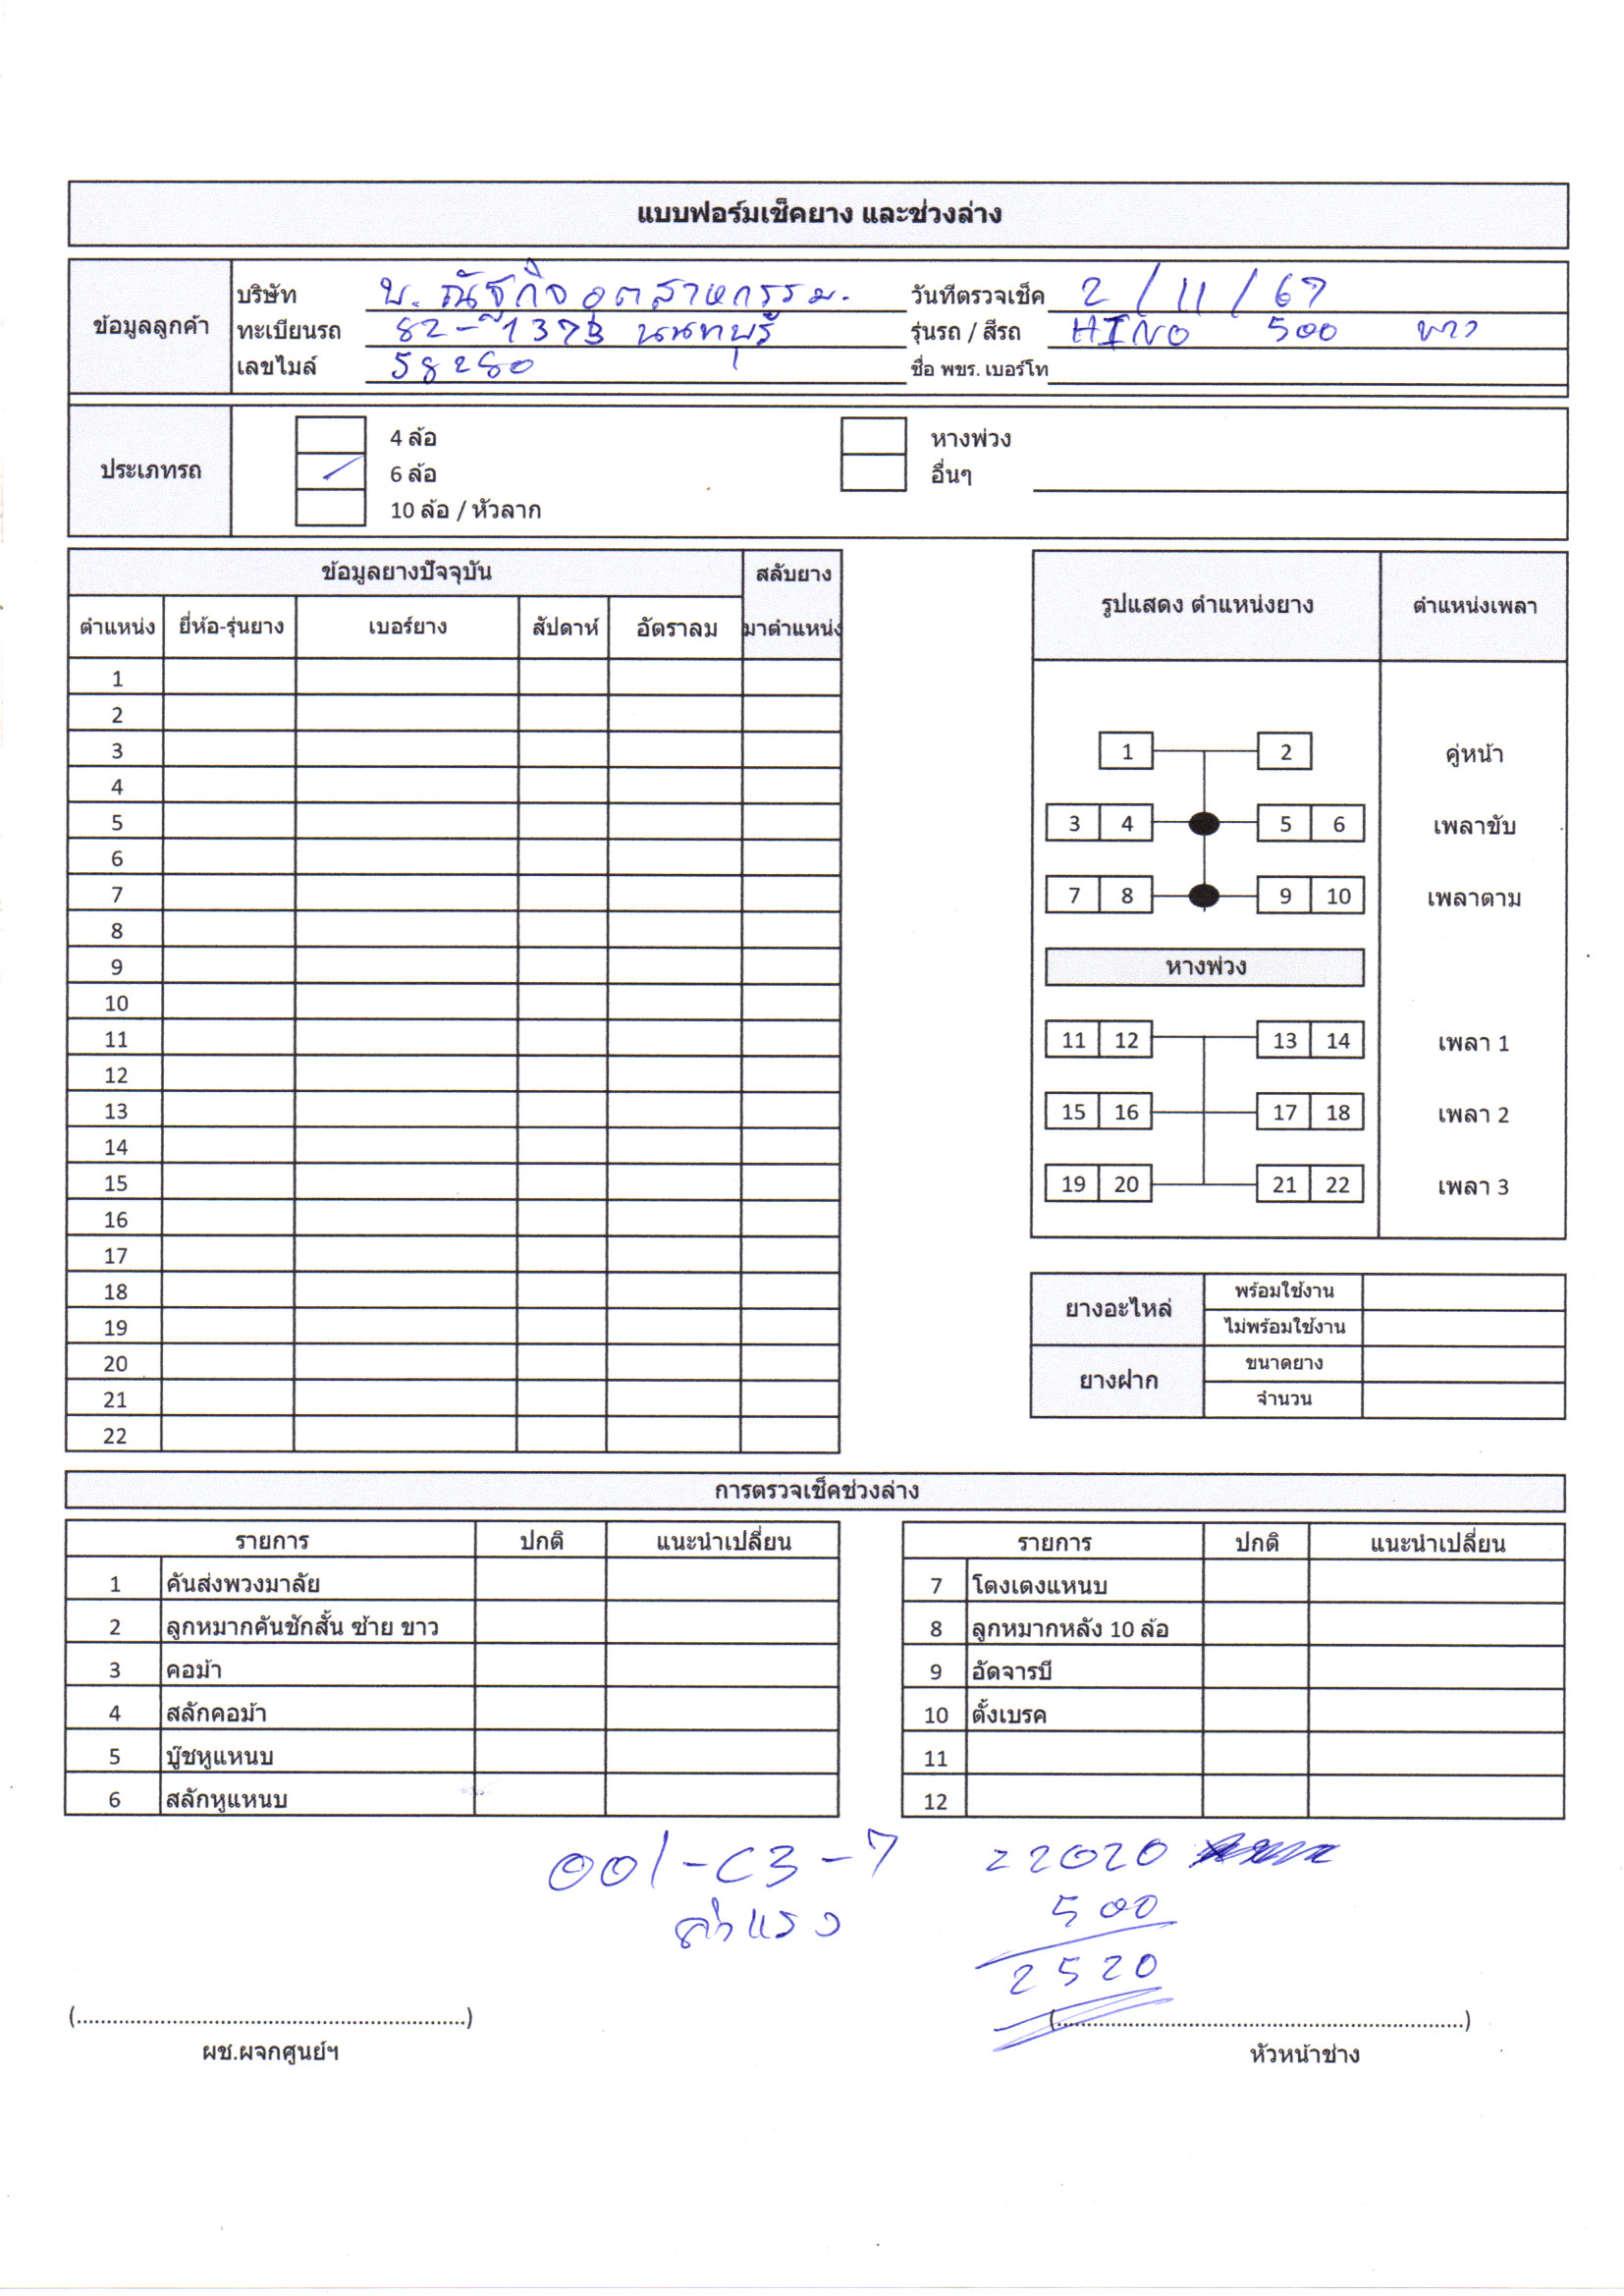 แบบฟอร์มเช็คยาง และช่วงล่าง
ข้อมูลลูกค้า
บริษัท บ. ณัฐกิจอุตสาหกรรม. วันที่ตรวจเช็ค 2 / 11 / 67
ทะเบียนรถ 82-1373 นนทบุรี รุ่นรถ / สีรถ HINO 500 ขาว
เลขไมล์ 58280 ชื่อ พขร. เบอร์โท
ประเภทรถ
4 ล้อ หางพ่วง
6 ล้อ อื่นๆ
10 ล้อ / หัวลาก
ข้อมูลยางปัจจุบัน สลับยาง
ตำแหน่ง ยี่ห้อ-รุ่นยาง เบอร์ยาง สัปดาห์ อัตราลม มาตำแหน่ง
1
2
3
4
5
6
7
8
9
10
11
12
13
14
15
16
17
18
19
20
21
22
รูปแสดง ตำแหน่งยาง ตำแหน่งเพลา
1 2 คู่หน้า
3 4 5 6 เพลาขับ
7 8 9 10 เพลาตาม
หางพ่วง
11 12 13 14 เพลา 1
15 16 17 18 เพลา 2
19 20 21 22 เพลา 3
ยางอะไหล่ พร้อมใช้งาน
ไม่พร้อมใช้งาน
ยางฝาก ขนาดยาง
จำนวน
การตรวจเช็คช่วงล่าง
รายการ ปกติ แนะนำเปลี่ยน
1 คันส่งพวงมาลัย
2 ลูกหมากคันชักสั้น ซ้าย ขาว
3 คอม้า
4 สลักคอม้า
5 บู๊ชหูแหนบ
6 สลักหูแหนบ
รายการ ปกติ แนะนำเปลี่ยน
7 โตงเตงแหนบ
8 ลูกหมากหลัง 10 ล้อ
9 อัดจารบี
10 ตั้งเบรค
11
12
001-C3-7 22020
ค่าแรง 500
2520
(................................................................)
ผช.ผจกศูนย์ฯ
(................................................................)
หัวหน้าช่าง